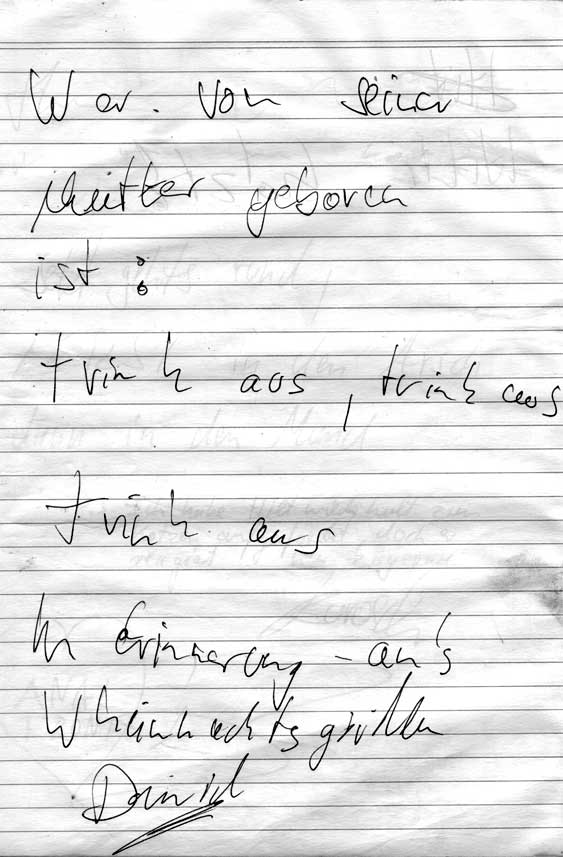 Wer. von seiner
Mutter geboren
ist :
trink aus, trink aus
trink aus
In Erinnerung - an's
Wheinnachtsgrillen